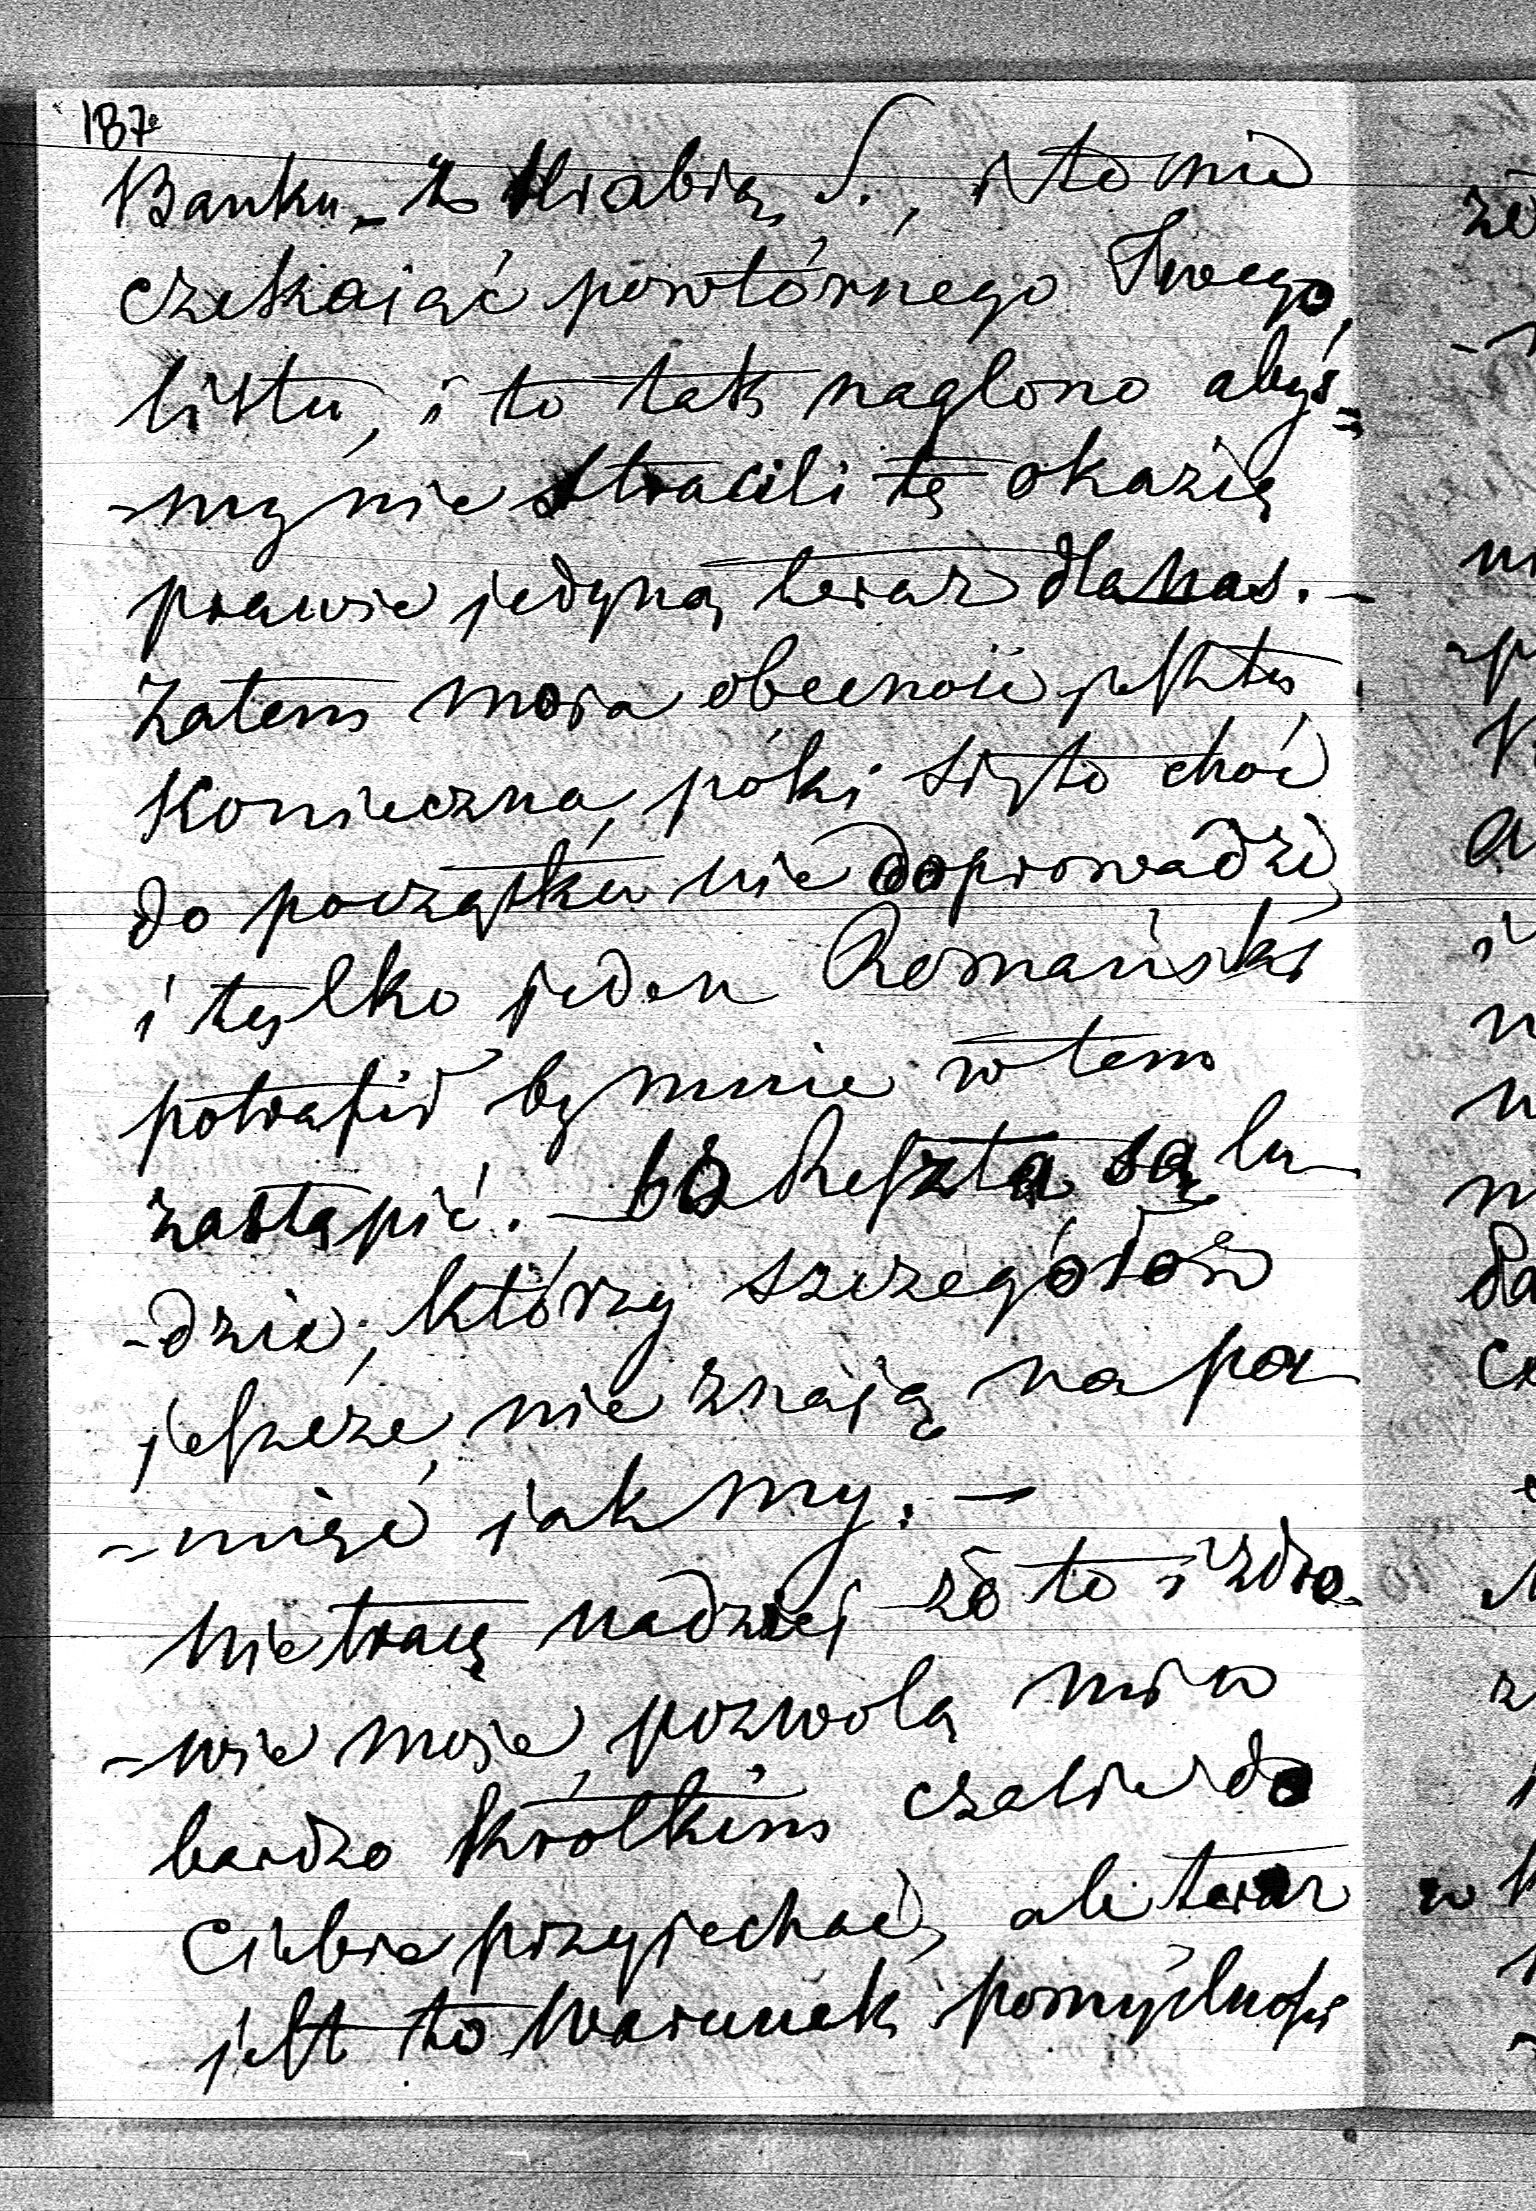 187
Banku – z Hrabią S., i to nie
czekaiąć powtórnego Twego
listu, i to tak naglono abyś=
-my nie stracili tę okazię
prawie jedyną teraz dla nas. –
Zatem moia obecność jest tu
Konieczna, póki się to choć
do początku nie doprowadzi
i tylko jeden Romański
potrafił by mnie w tem
zastąpić. – bo Reszta są lu-
-dzie, którzy szczegółów
jeszcze nie znają na pa-
-mięć jak my. –
Nie tracę nadziej że to i zdro-
-wie moje pozwolą mi w
bardzo krótkim czasie do
Ciebie przyjechać, ale teraz
jest to warunek pomyślności